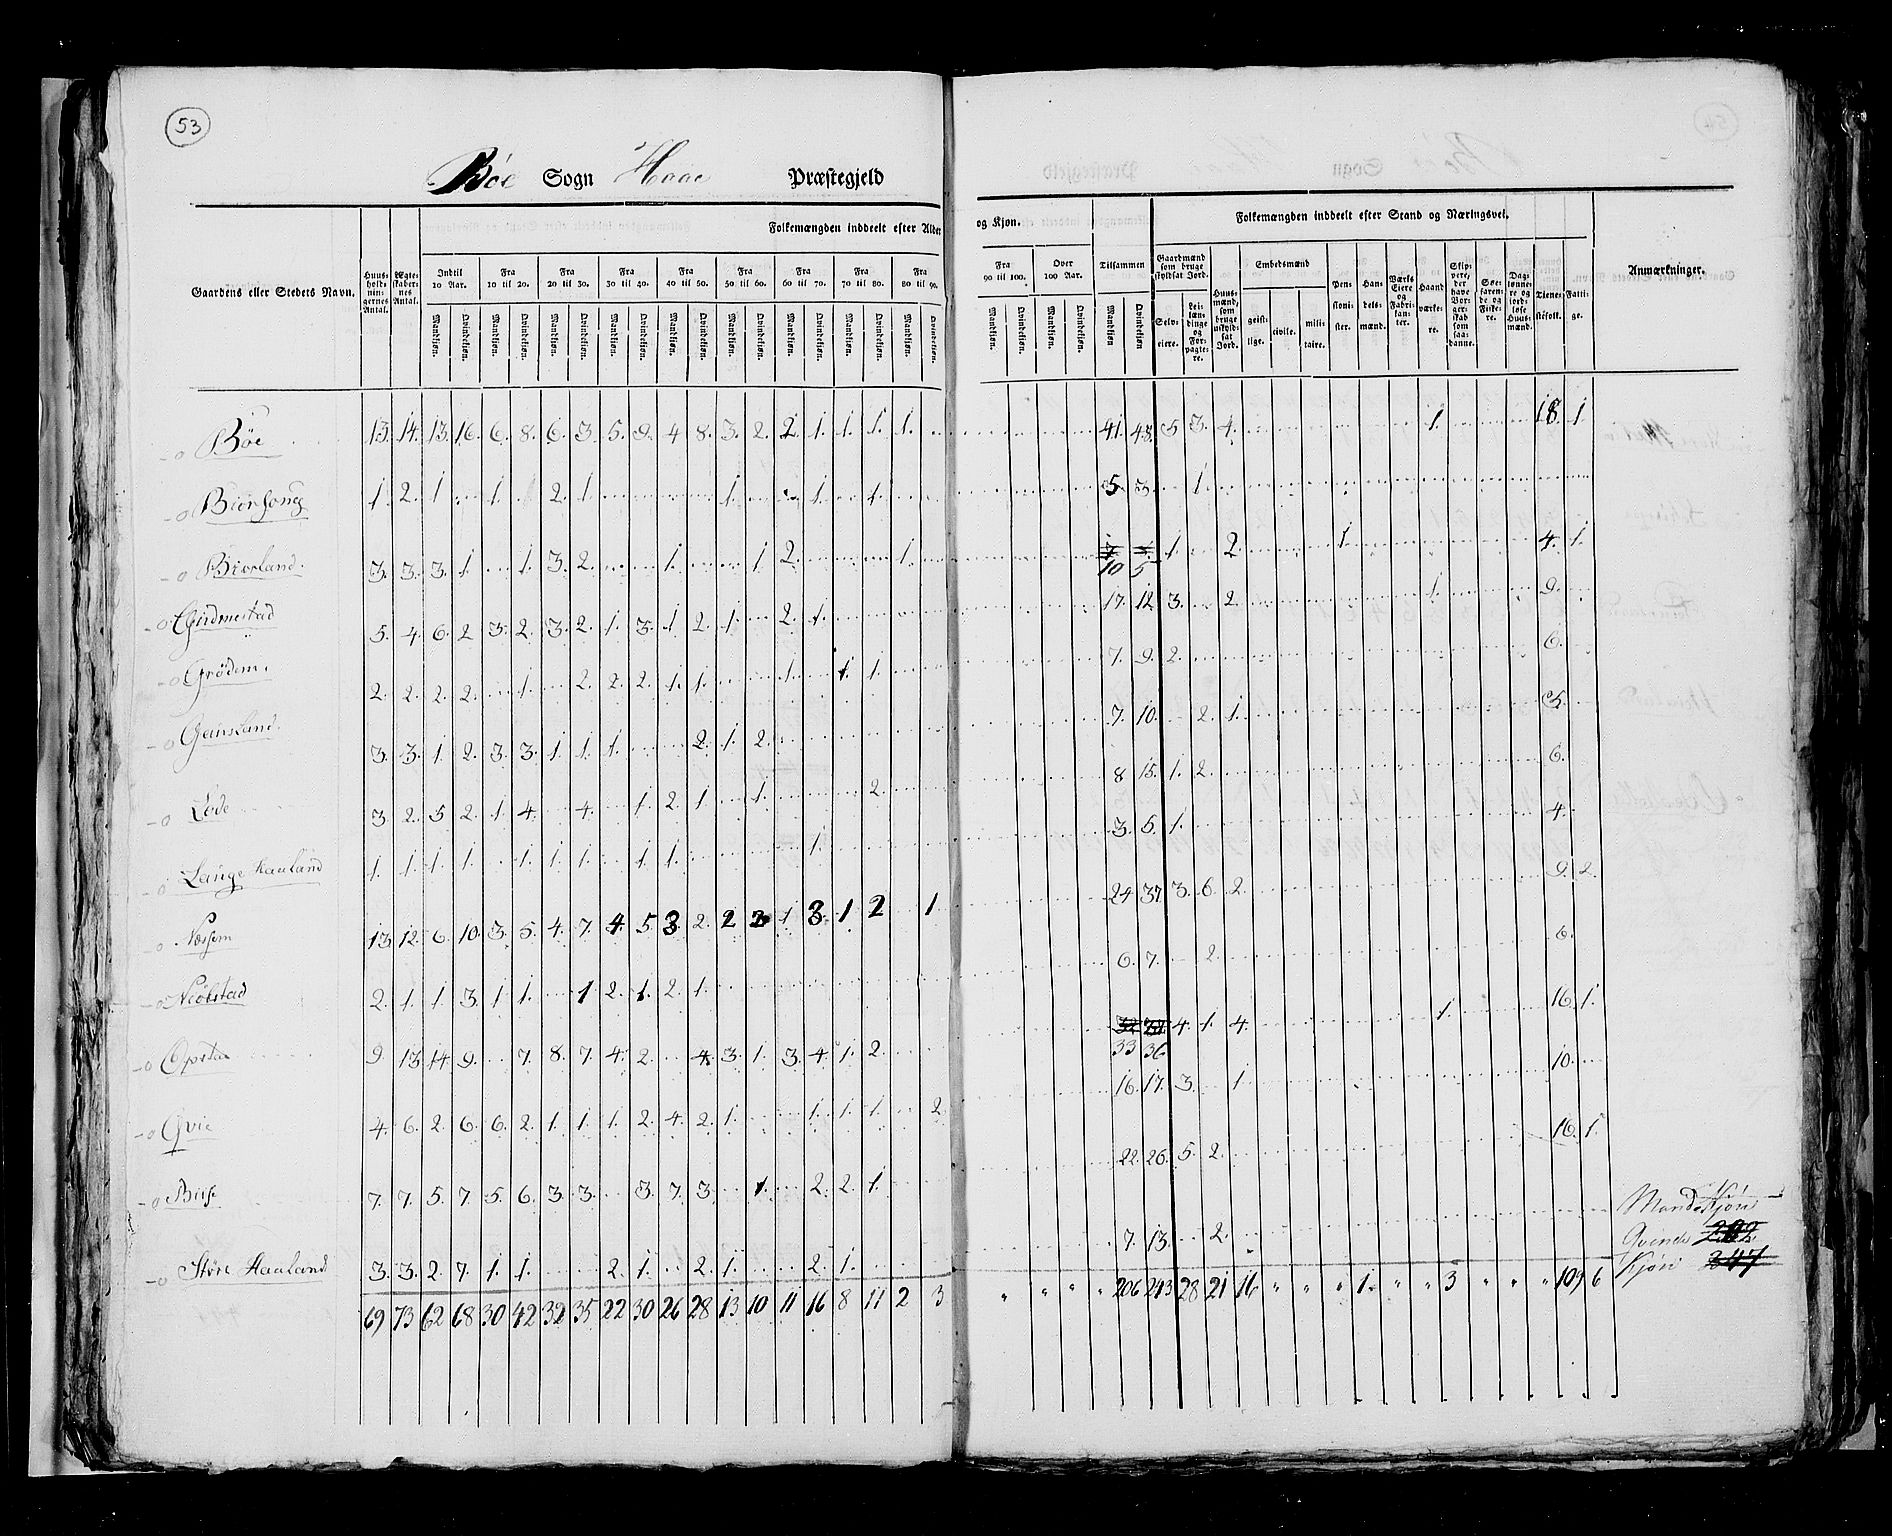 53
Bóe Sogn Haae Præstegjeld
Gaardens eller Stedets Navn.
Huus-holdnin-gernes Antal.
Ægte-skaber-nes Antal.
Folkemængden inddeelt efter Alder
og Kjøn.
Indtil 10 Aar.
Fra 10 til 20.
Fra 20 til 30.
Fra 30 til 40.
Fra 40 til 50.
Fra 50 til 60.
Fra 60 til 70.
Fra 70 til 80.
Fra 80 til 90.
Fra 90 til 100.
Over 100 Aar.
Tilsammen
Mandkjøn. Qvindekjøn.
Folkemængden inddeelt efter Stand og Næringsvei.
Gaardmænd som bruge skyldsat Jord.
Selv-eiere.
Lei-læn-dinge og For-pagte-re.
Huus-mænd, som bruge uskyld-sat Jord.
Embedsmænd
geist-lige.
civile.
mili-taire.
Pen-sioni-ster.
Han-dels-mænd.
Værks Eiere og Fabri-kan-ter.
Haand værke-re.
Skip-pere, der have Bor-gerskab som saa-danne.
Søe-farende og Fiske-re.
Dag-lønne-re og jord-løse Huus-mænd.
Tiene-stefolk.
Fatti-ge.
Anmærkninger.
Bóe 13. 14. 13. 16. 6. 8. 6. 3. 5. 9. 4 8. 3. 2. 2. 1. 1. 1. 1. 41. 48. 5 3. 4. 1. 18. 1.
1. 2. 1 1. 2. 1. 1. 1. 1. 5. 3. 1.
Biorland. 3. 3. 3. 1. 1. 3. 2. 1. 1. 2. 1. 10 5 1. 2. 1 4. 1.
5. 4. 6. 2 3. 2. 3. 2. 1. 3. 1. 2. 1. 2. 1. 17. 12 3. 2. 1. 9.
Grödem. 2. 2. 2. 2. 1. 2. 2. 2. 1. 1. 1. 1. 1. 7. 9. 2. 6.
3. 3. 1. 2. 3. 3. 1. 1. 1. 2. 1. 2. 7. 10. 2. 1. 5.
Lode 3. 2. 5 2. 1 4. 4. 1. 2. 1 1. 2. 8 15. 1. 2. 6.
Lange Haaland 1. 1. 1. 1. 1. 1. 1. 1. 1. 1. 3. 5. 1. 4.
Nessem 13. 12. 6. 10. 3. 5. 4. 7. 4. 5. 3. 2. 2 2 1 3. 1 2 1 24. 37 3. 6. 2. 9. 2.
2. 1. 1. 3. 1. 1. 1 2. 1. 2. 1. 6. 7. 2. 6.
Opstad 9. 13. 14 9. 7. 8. 7. 4. 2. 4. 3. 1. 3. 4. 1. 2. 33 36 4. 1. 4. 1. 16. 1.
Qvie 4. 6. 2. 6. 6. 2. 1. 1. 1. 2. 4. 2. 1. 1. 1. 1. 2. 16. 17. 3. 1. 10.
7. 7. 5. 7. 5. 6. 3. 3. 3. 7. 3. 1. 2. 2. 1. 22. 26. 5. 2. 16. 1.
Store Haaland 3. 3. 2. 7. 1. 1. 2. 1. 2. 1. 2. 1. 7. 13. 2.
69 73 62 68 30 42 32 35 22 30 26 28 13 10 11 16 8 11 2 3 206 243 28 21 16 1. 3 109 6
Mands Kjön
Qvinde
Kjön